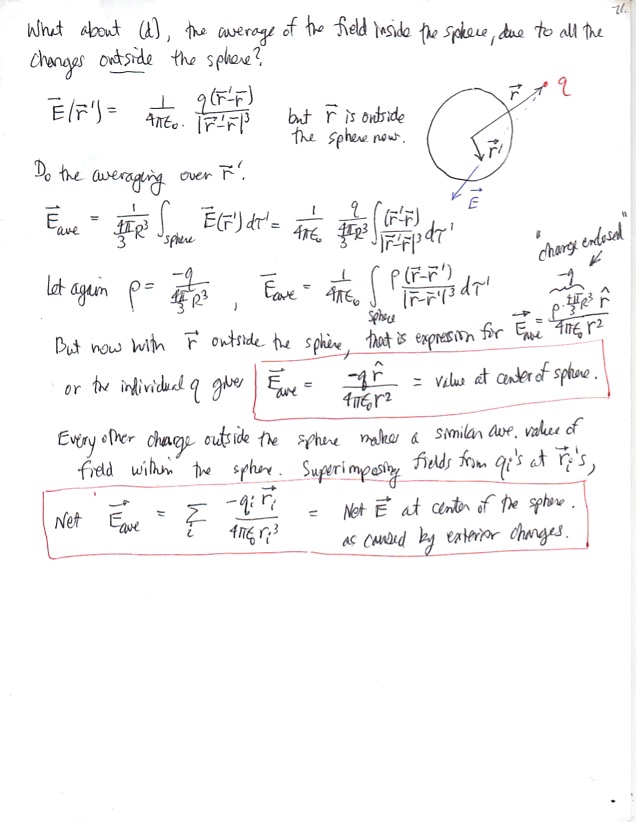 71.
What about (d), the average of the field inside the sphere, due to all the
charges outside the sphere?
E⃗(r⃗') = 1/4πε₀ · q(r⃗'-r⃗)/|r⃗'-r⃗|³ but r⃗ is outside
the sphere now.
r⃗ q
r⃗'
E⃗
Do the averaging over r⃗'.
E⃗ave = 1/(4π/3 R³) ∫sphere E⃗(r⃗')dτ' = 1/4πε₀ q/(4π/3 R³) ∫ (r⃗'-r⃗)/|r⃗'-r⃗|³ dτ'
"charge enclosed"
Let again ρ = -q/(4π/3 R³), E⃗ave = 1/4πε₀ ∫sphere ρ(r⃗-r⃗')/|r⃗-r⃗'|³ dτ'
-q
But now with r⃗ outside the sphere, that is expression for E⃗ave = ρ·4π/3 R³ r̂/4πε₀r²
or the individual q gives E⃗ave = -q r̂/4πε₀r² = value at center of sphere.
Every other charge outside the sphere makes a similar ave. value of
field within the sphere. Superimposing fields from qᵢ's at r⃗ᵢ's,
Net E⃗ave = Σᵢ -qᵢ r⃗ᵢ/4πε₀rᵢ³ = Net E⃗ at center of the sphere.
as caused by exterior charges.